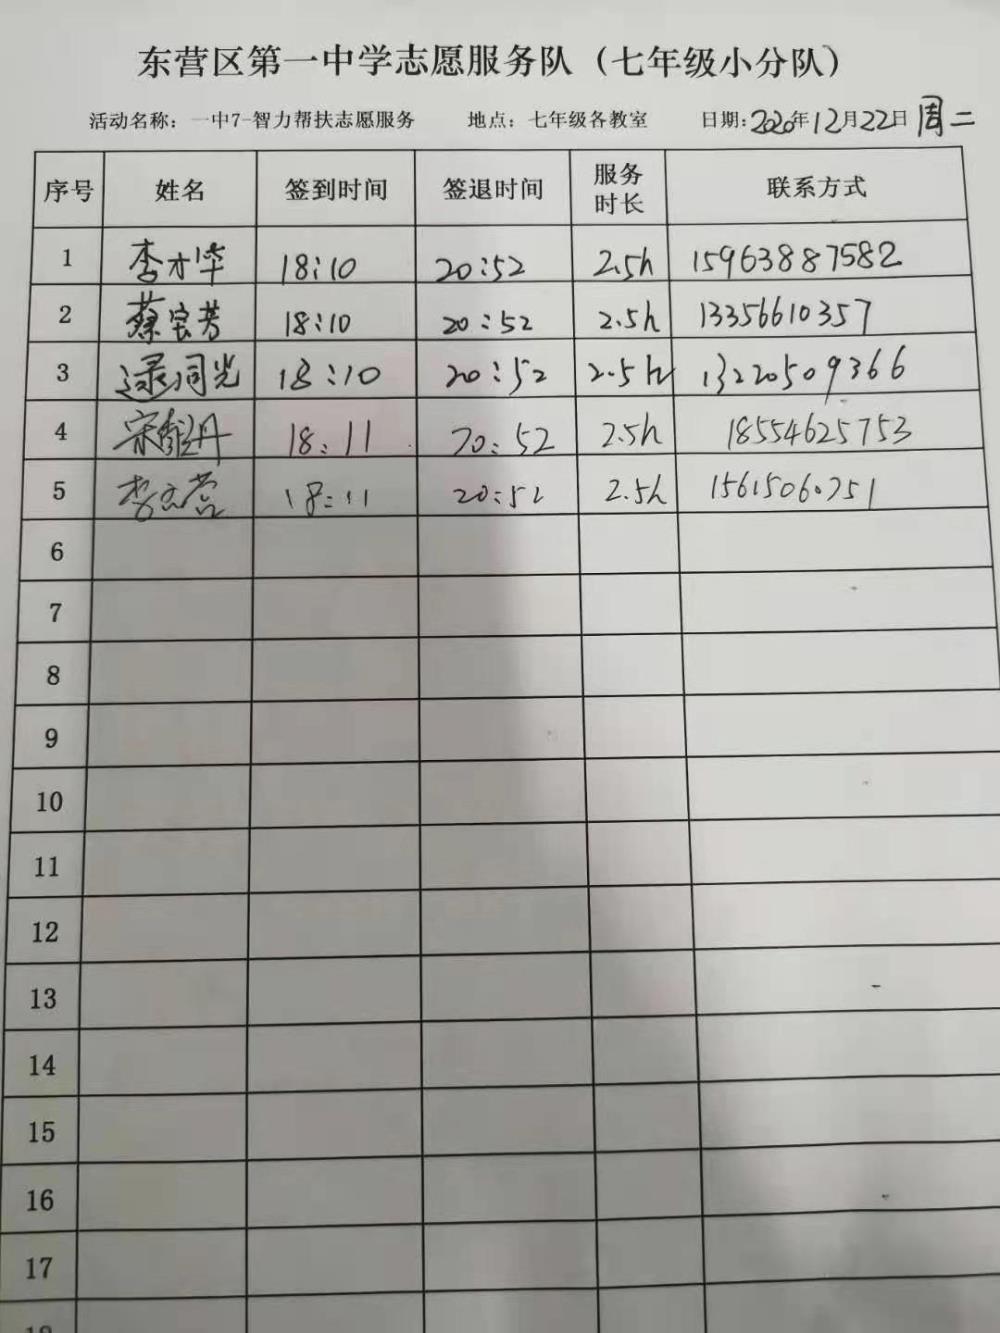 东营区第一中学志愿服务队（七年级小分队）
活动名称：一中7-智力帮扶志愿服务 地点：七年级各教室 日期：2020年12月22日 周二
序号 姓名 签到时间 签退时间 服务时长 联系方式
1 李才华 18:10 20:52 2.5h 15963887582
2 蔡宝芳 18:10 20:52 2.5h 13356610357
3 逯同光 18:10 20:52 2.5h 13220509366
4 宋 丹 18:11 20:52 2.5h 18554625753
5 李 18:11 20:52 2.5h 15615060751
6
7
8
9
10
11
12
13
14
15
16
17